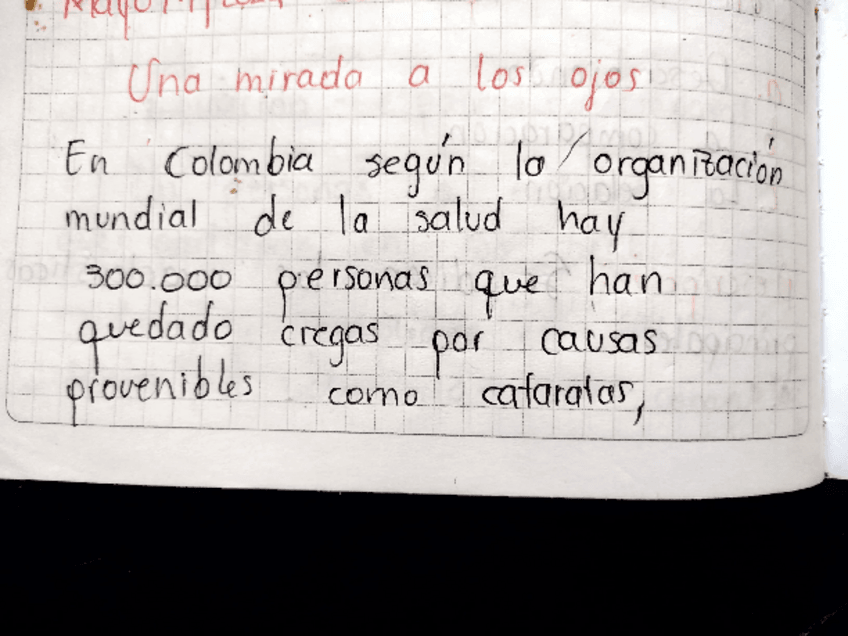 Una mirada a los ojos
En Colombia según la organización
mundial de la salud hay
300.000 personas que han
quedado cregas por causas
provenibles como cataratas,